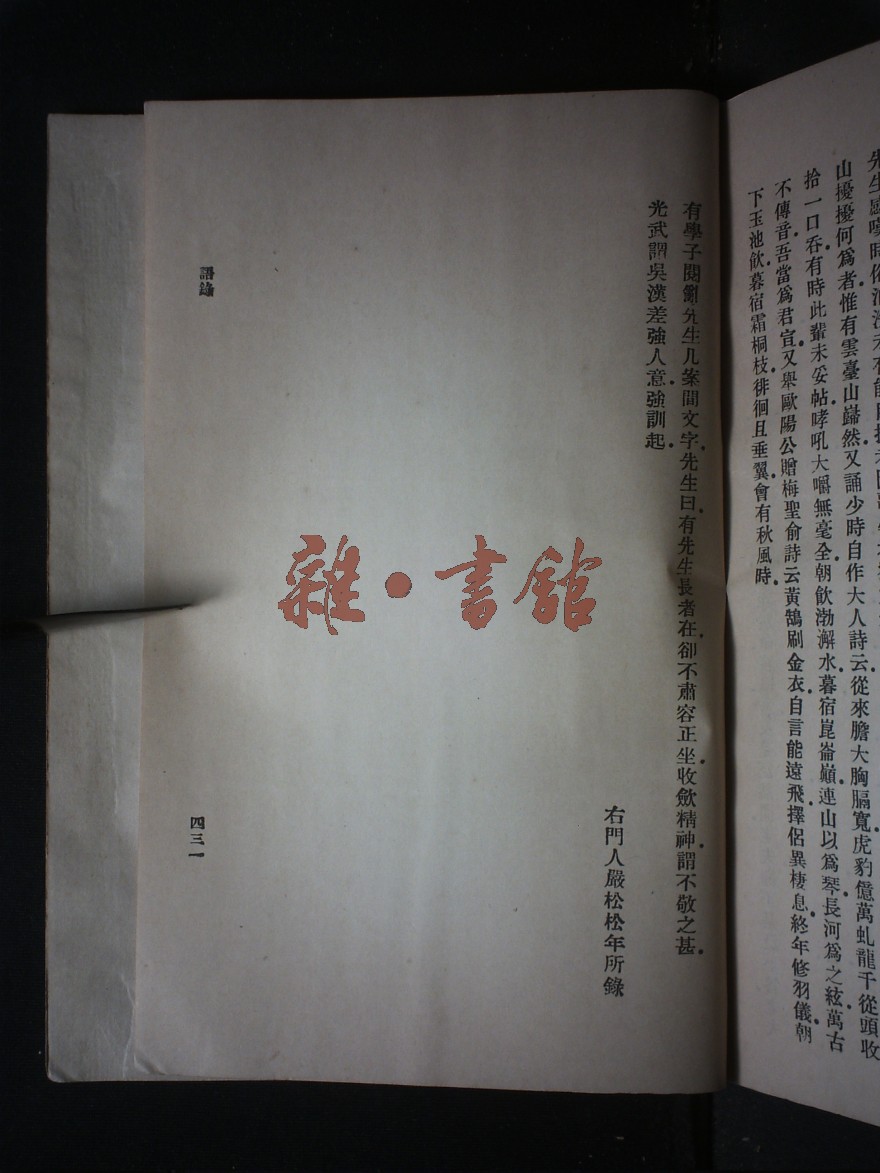 先生感嘆時俗
山擾擾何為者惟有雲臺山巋然又誦少時自作大人詩云從來膽大胸膈寬虎豹億萬虬龍千從頭收
拾一口吞有時此輩未妥帖哮吼大嚼無毫全朝飲渤澥水暮宿崑崙巔連山以為琴長河為之絃萬古
不傳音吾當為君宣又舉歐陽公贈梅聖俞詩云黃鵠刷金衣自言能遠飛擇侶異棲息終年修羽儀朝
下玉池飲暮宿霜桐枝徘徊且垂翼會有秋風時
有學子閱亂先生几案間文字先生曰有先生長者在卻不肅容正坐收斂精神謂不敬之甚
光武謂吳漢差強人意強訓起
右門人嚴松松年所錄
語錄
四三一
雜·書館